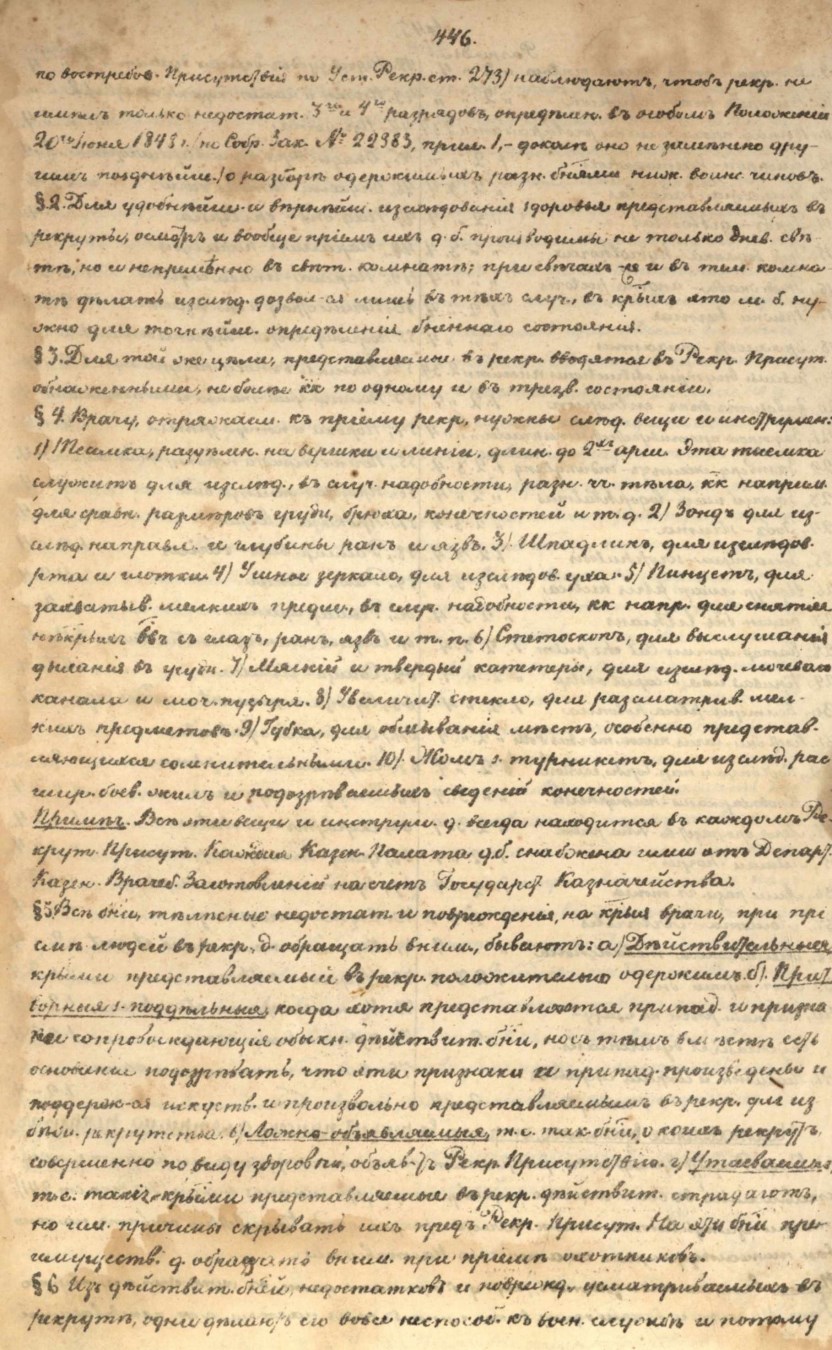 446.
по востребов. Присутствій по Уст. Рекр. ст. 273) наблюдаютъ, чтобъ рекр. не
имѣлъ только недостат. 3го и 4го разрядовъ, опредѣлен. въ особомъ Положеніи
20го Іюня 1843 г. /по Собр. Зак. № 22383, прил. 1,- доколѣ оно не замѣнено дру-
гимъ позднѣйш./ о разборѣ одержимыхъ разн. бнями ниж. воинс. чиновъ.
§ 2. Для удобнѣйш. и вѣрнѣйш. изслѣдованія здоровья представляемыхъ въ
рекруты, осмотръ и вообще пріемъ ихъ д. б. производимы не только днев. свѣ-
тѣ, но и непримѣнно въ свѣт. комнатѣ; при свѣчахъ и въ тем. комна-
тѣ дѣлать изслѣд. дозвол-ся лишь въ тѣхъ случ., въ крыхъ это м. б. ну-
жно для точнѣйш. опредѣленія бненнаго состоянія.
§ 3. Для той же цѣли, представляемые въ рекр. вводятся въ Рекр. Присут.
обнаженными, не болѣе кк по одному и въ трезв. состояніи.
§ 4. Врачу, отряжаем. къ пріему рекр., нужны слѣд. вещи и инструмен:
1) Тесемка, раздѣлен. на вершки и линіи, длин. до 2хъ арш. Эта тесемка
служитъ для изслѣд., въ случ. надобности, разн. чч. тѣла, кк наприм.
для сравн. размѣровъ груди, брюха, конечностей и т. д. 2) Зондъ для из-
слѣд. направл. и глубины ранъ и язвъ. 3) Шпадликъ, для изслѣдов.
рта и глотки. 4) Ушное зеркало, для изслѣдов. уха. 5) Пинцетъ, для
захватыв. мелкихъ предме., въ случ. надобности, кк напр. для снятія
нѣкрыхъ вв съ глазъ, ранъ, язвъ и т. п. 6) Стетоскопъ, для выслушанія
дыханія въ груди. 7) Мягкій и твердый катетеры, для изслѣд. мочеваго
канала и моч. пузыря. 8) Увеличит. стекло, для разсматрив. мел-
кихъ предметовъ. 9) Губка, для обмыванія мѣстъ, особенно представ-
ляющихся сомнительными. 10) Жомъ s. турникетъ, для изслѣд. рас
шир. боев. жилъ и подозрѣваемыхъ сведеній конечностей.
Примѣч. Всѣ эти вещи и инструм. д. всегда находится въ каждомъ Ре-
крут. Присут. Казен. Палата д. б. снабжена ими отъ Департ.
Казен. Врачеб. Заготовленій на счетъ Государст. Казначейства.
§ 5. Всѣ бни, тѣлесные недостат. и поврежденія, на крыя врачи, при прі
емѣ людей въ рекр. д. обращать вним., бываютъ: а) Дѣйствительныя
крыми представляемый въ рекр. положительно одержимъ. б) Прит
ворныя s. поддѣльныя, когда хотя представляются припад. и призна
ки сопровождающія обыкн. дѣйствит. бни, но съ тѣмъ вмѣстѣ есть
основаніе подозрѣвать, что эти признаки и припад. произведены и
поддерж-ся искуств. и произвольно представляемымъ въ рекр. для из
бѣж. рекрутства. в) Ложно-объявляемыя, т. е. так. бни, о коихъ рекрутъ
совершенно по виду здоровый, объяв-тъ Рекр. Присутствію. г) Утаеваемыя,
т. е. такія крыми представляемые въ рекр. дѣйствит. страдаютъ,
но им. причины скрывать ихъ предъ Рекр. Присут. На эти бни пре-
имуществ. д. обращать вним. при пріемѣ охотниковъ.
§ 6 Изъ дѣйствит. бней, недостатковъ и поврежд. усматриваемыхъ въ
рекрутѣ, одни дѣлаютъ его вовсе неспособ. къ воен. службѣ и потому